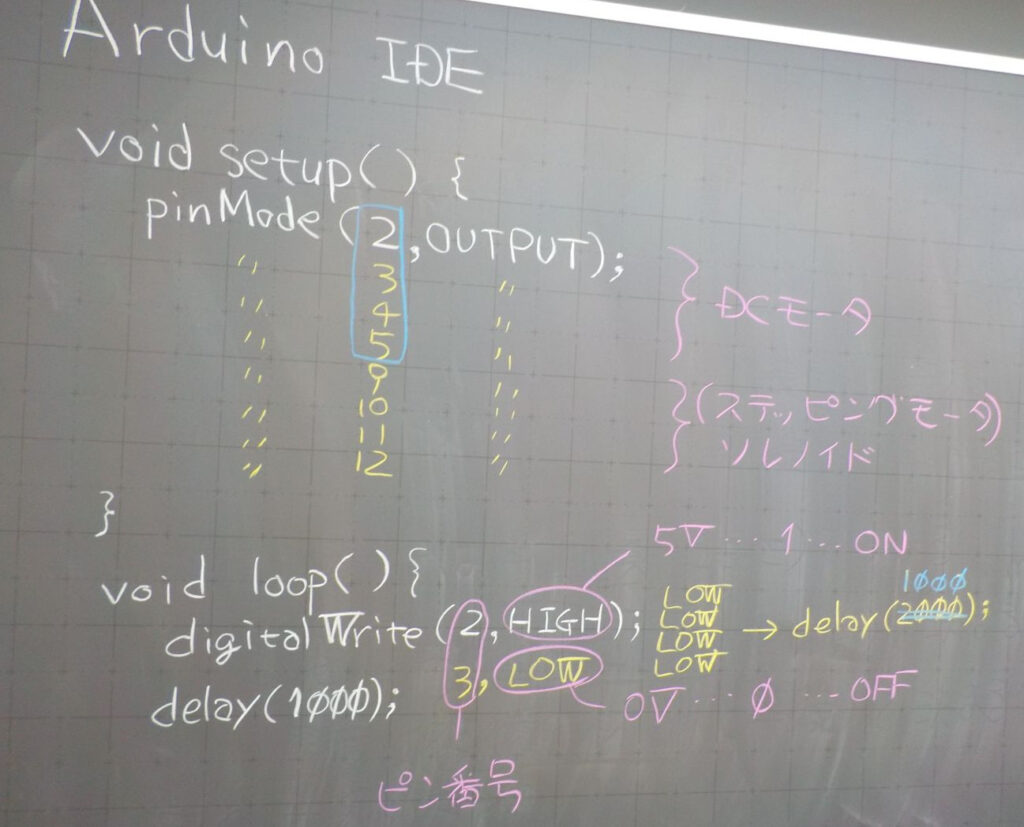 Arduino IDE
void setup() {
pinMode (2,OUTPUT);
〃 3 〃
〃 4 〃
〃 5 〃
〃 9 〃
〃 10 〃
〃 11 〃
〃 12 〃
} DCモータ
} (ステッピングモータ)
ソレノイド
}
void loop() {
5V … 1 … ON
digitalWrite (2, HIGH);
3, LOW
LOW
LOW
LOW
LOW
→ delay(2000);
1000
delay(1000);
0V … 0 … OFF
ピン番号